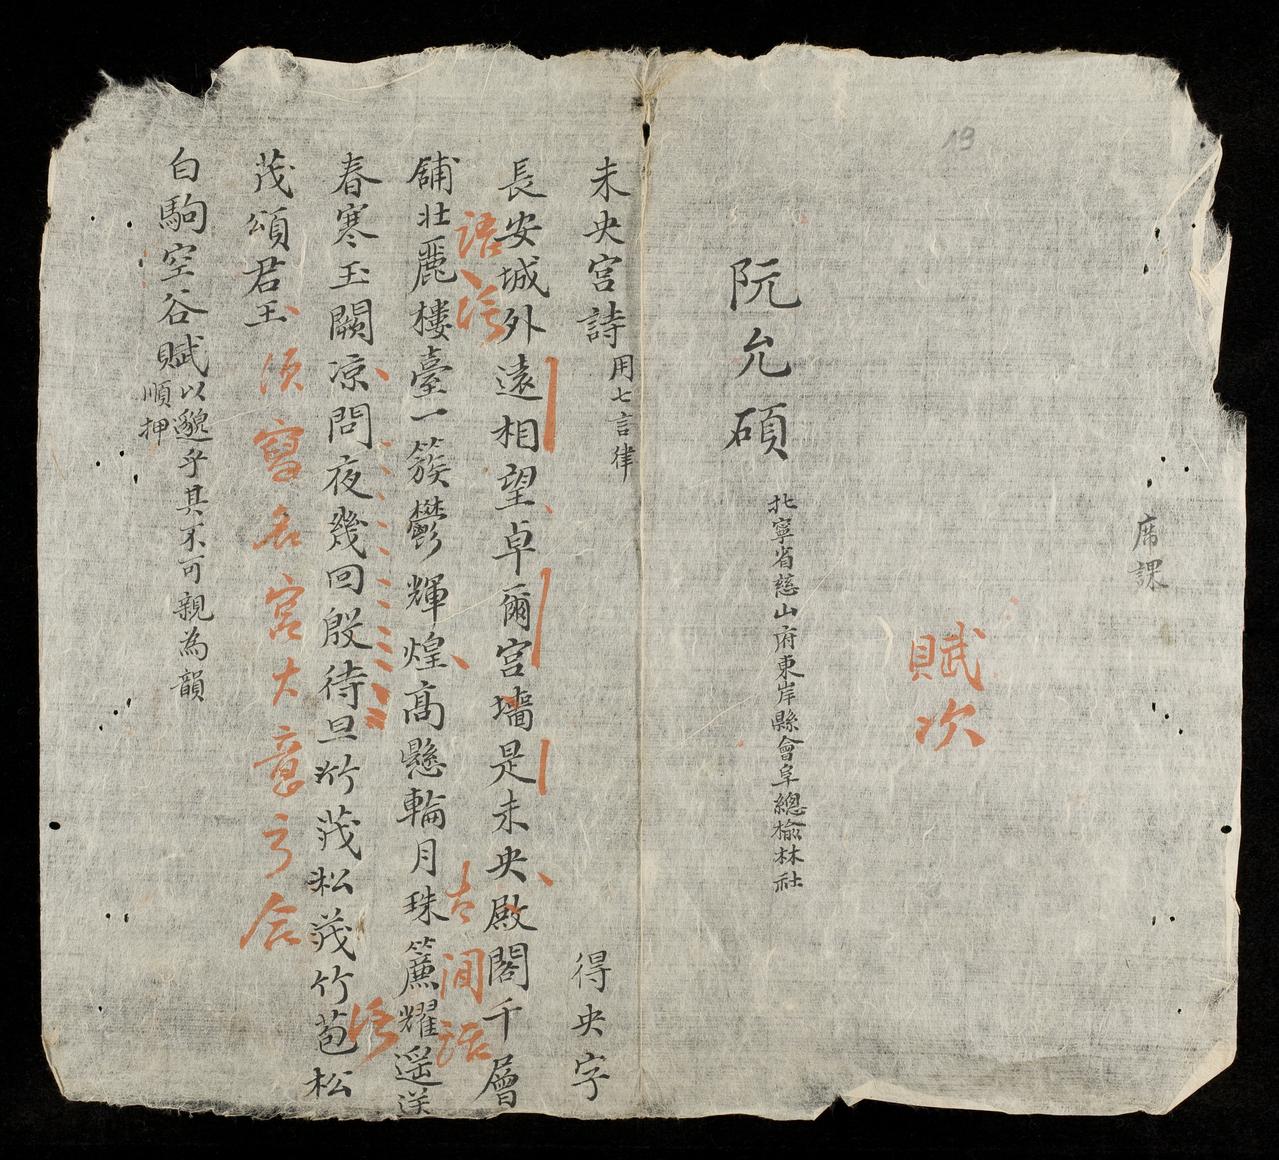 19
席課
賦次
阮允碩
北寧省慈山府東岸縣會阜總榆林社
未央宮詩 用七言律 得央字
長安城外遠相望卓爾宮墻是未央殿閣千層
舖壯麗樓臺一簇鬱輝煌高懸輪月珠簾耀遥送
春寒玉闕凉問夜幾回殷待旦竹茂松茂竹苞松
茂頌君王
須寫名宮大章方合
白駒空谷賦 以邈乎其不可親為韻
順押